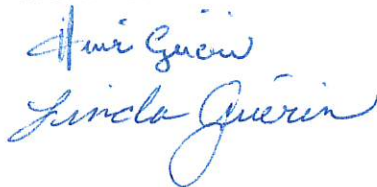 Guérin
Linda Guérin